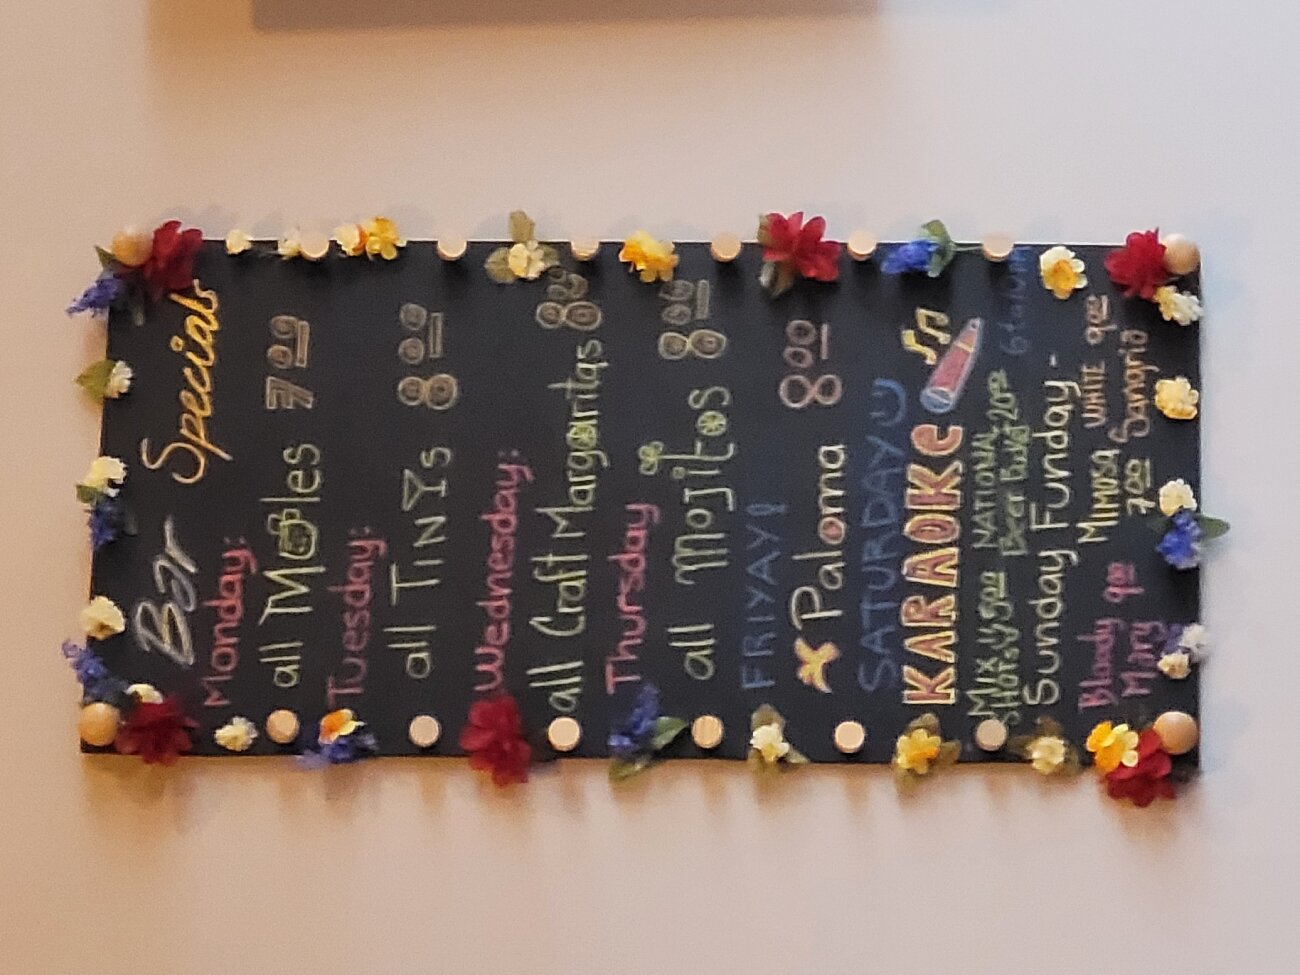 Bar Specials
Monday:
all Mules 7.00
Tuesday:
all TINYs 8.00
Wednesday:
all Craft Margaritas 8.00
Thursday
all mojitos 8.00
FRIYAY!
Paloma 8.00
SATURDAY
KARAOKE
Mix NATIONAL
SHOTS 5.00 Beer Bucket 20.00
Sunday Funday -
Bloody Mary 9.00
MIMOSA 7.00
WHITE Sangria 9.00